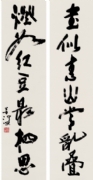 書似青山常亂疊
燈如紅豆最相思